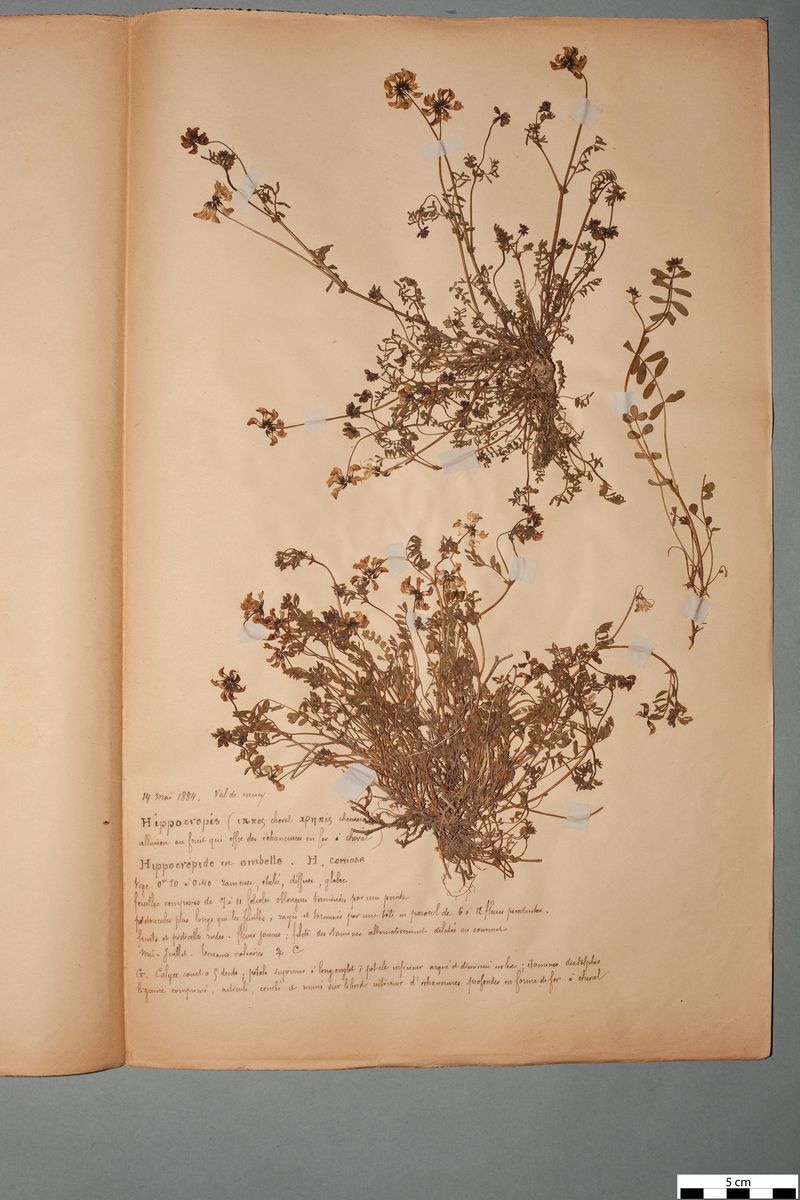 14 Mai 1884. Val de
Hippocrepis (ιππος cheval κρηπις chaussure
allusion au fruit qui offre des échancrures en fer à cheval)
Hippocrépide en ombelle. H. comosa
Tige 0m20 à 0.40 rameuse, étalée, diffuse, glabre
feuilles composées de 7 à 11 folioles oblongues terminées par une pointe
pédoncules plus longs que les feuilles, rayés et terminés par une tête en parasol de 6 à 12 fleurs pendantes.
fruits et pédicelles rudes. fleurs jaunes; filets des étamines alternativement dilatés au sommet
Mai-Juillet. Terrains calcaires ♃ C
G. Calyce court à 5 dents; pétale supérieur à long onglet; pétale inférieur arqué et diminué en bec; étamines diadelphes
légume comprimé, articulé, courbé et muni sur le bord intérieur d'échancrures profondes en forme de fer à cheval
5 cm